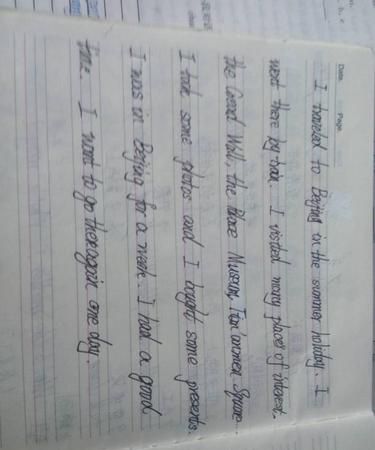 Date
Page
I traveled to Beijing in the summer holiday. I
went there by train. I visited many places of interest.
the Great Wall, the Palace Museum, Tian'anmen Square.
I took some photos and I bought some presents.
I was in Beijing for a week. I had a good
time. I want to go there again one day.